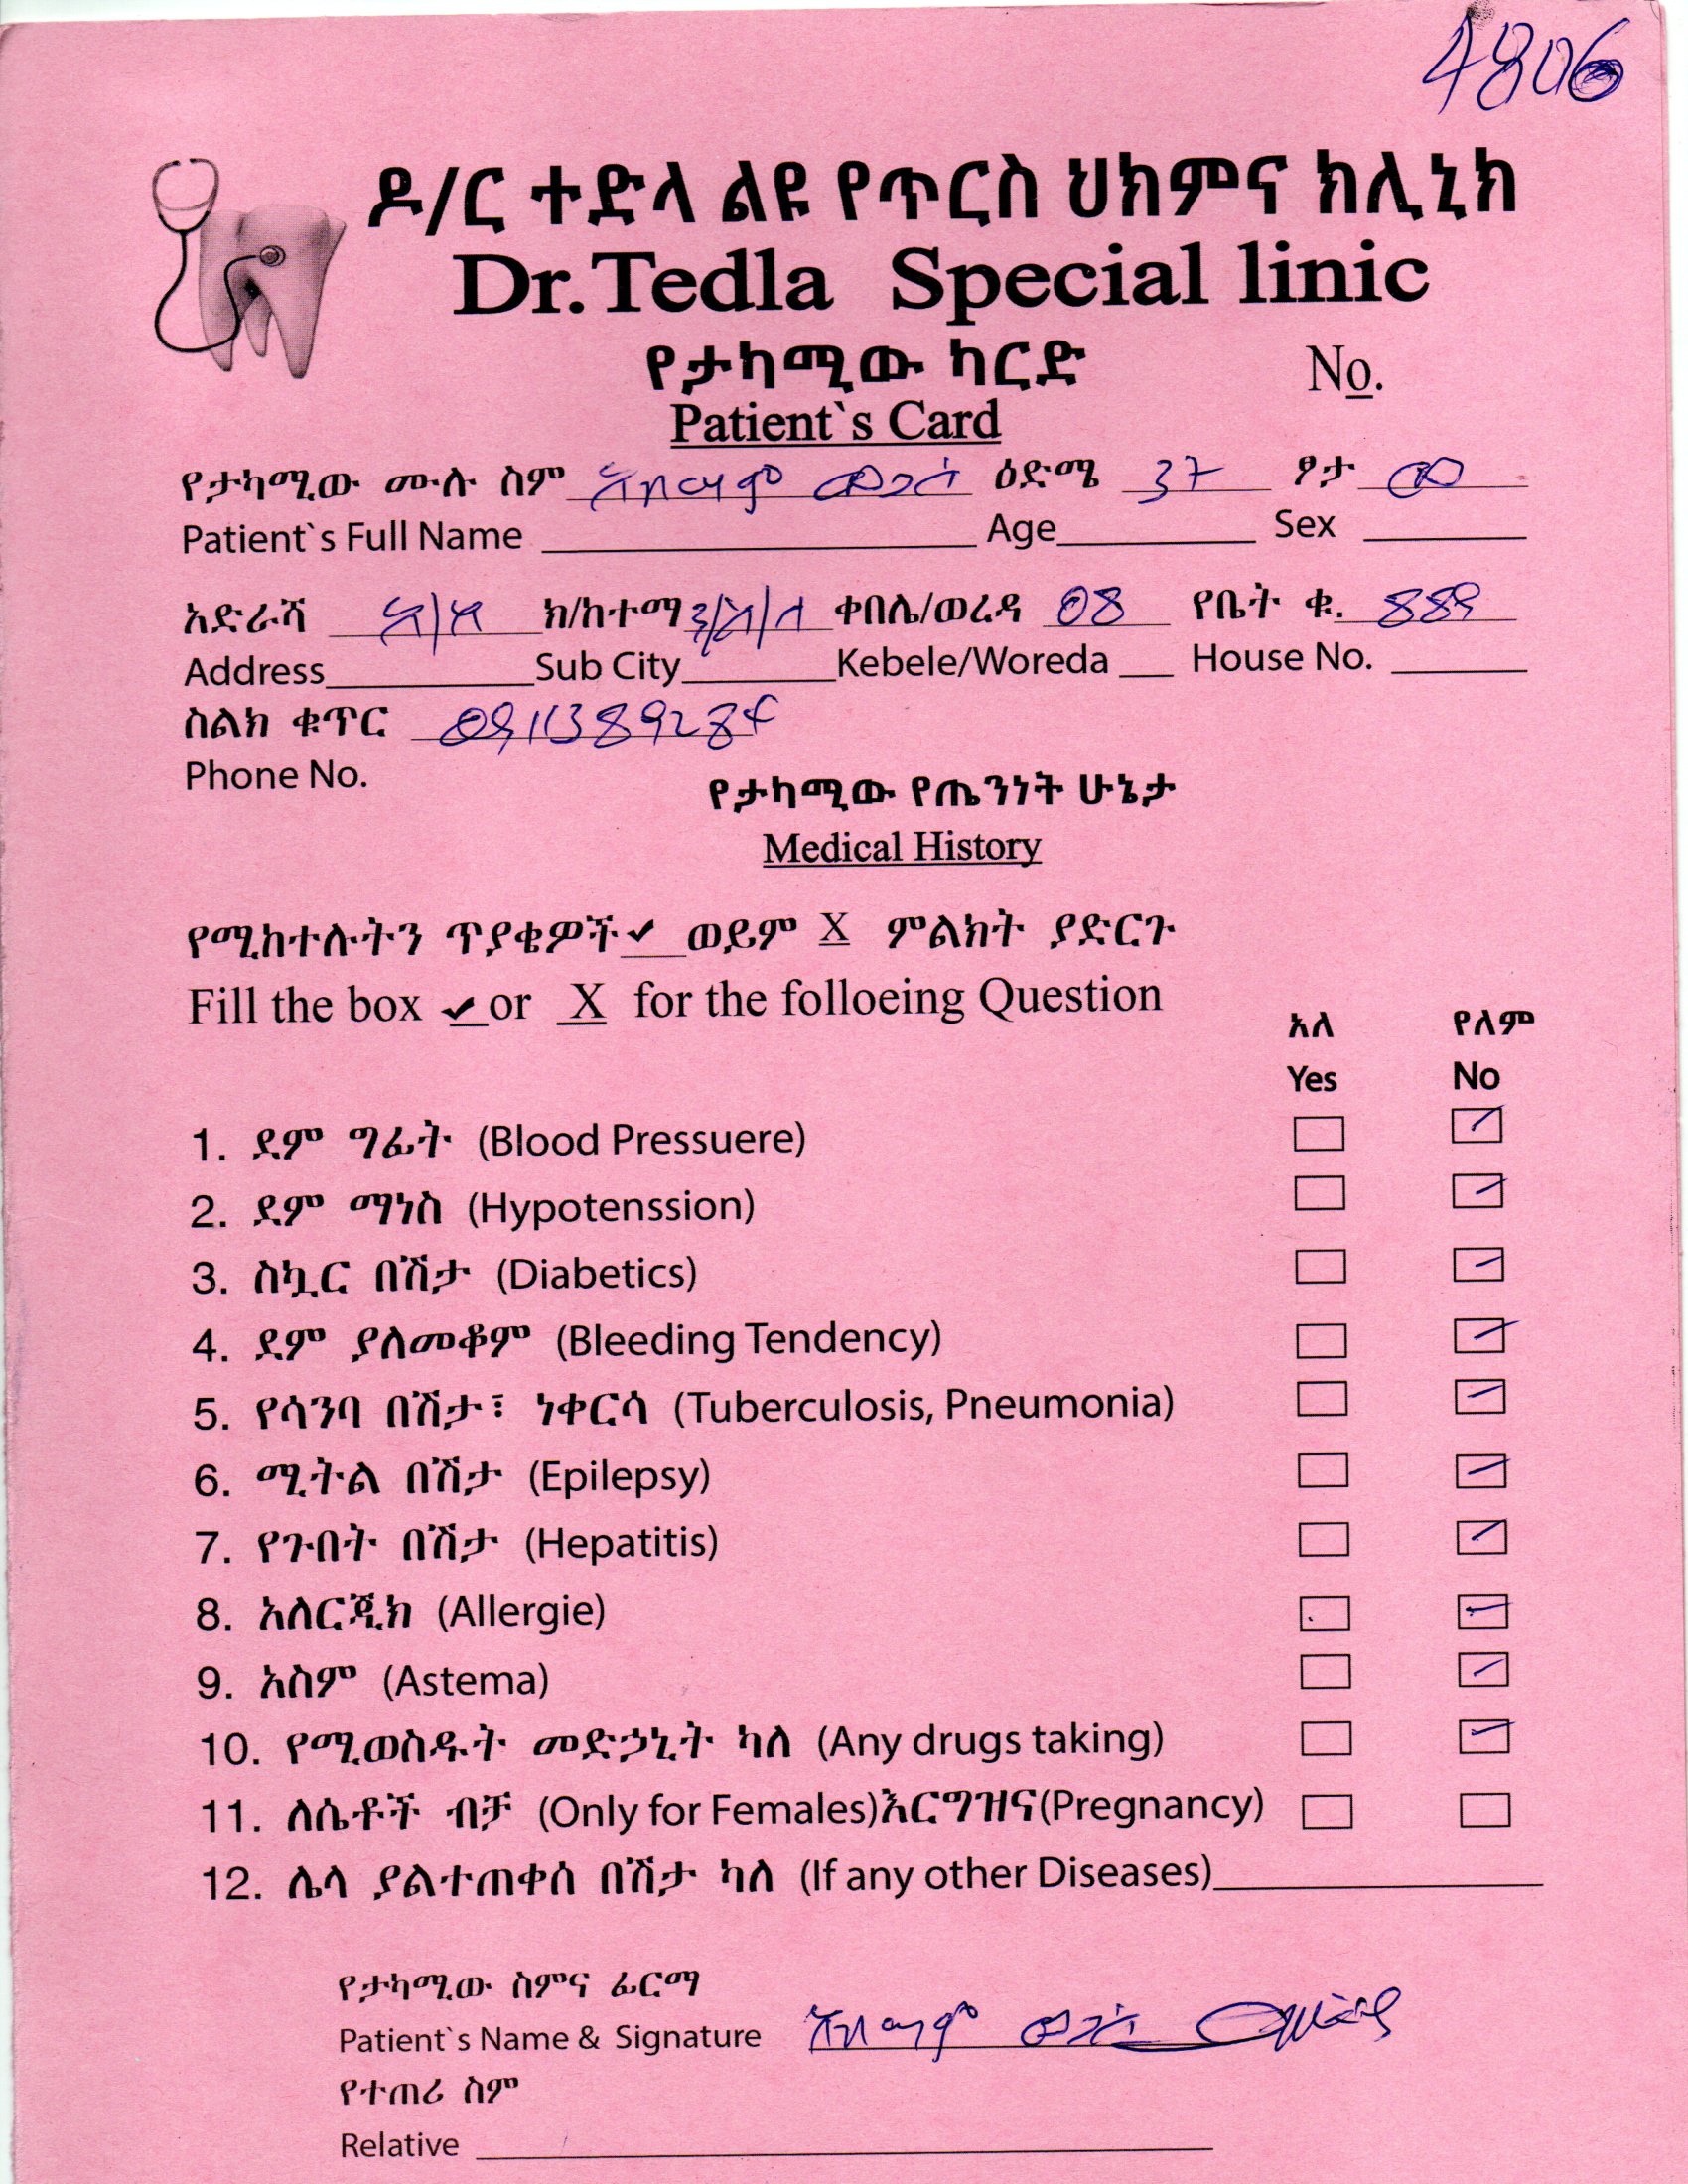 4806
ዶ/ር ተድላ ልዩ የጥርስ ህክምና ክሊኒክ
Dr.Tedla Special linic
የታካሚው ካርድ
No.
Patient`s Card
የታካሚው ሙሉ ስም አብርሃም ዕድሜ 37 ፆታ ወ
Patient`s Full Name Age Sex
አድራሻ አ/አ ክ/ከተማ ቀበሌ/ወረዳ 08 የቤት ቁ. 889
Address Sub City Kebele/Woreda House No.
ስልክ ቁጥር
Phone No.
የታካሚው የጤንነት ሁኔታ
Medical History
የሚከተሉትን ጥያቄዎች ✓ ወይም X ምልክት ያድርጉ
Fill the box ✓ or X for the folloeing Question
አለ የለም
Yes No
1. ደም ግፊት (Blood Pressuere)
2. ደም ማነስ (Hypotenssion)
3. ስኳር በሽታ (Diabetics)
4. ደም ያለመቆም (Bleeding Tendency)
5. የሳንባ በሽታ፣ ነቀርሳ (Tuberculosis, Pneumonia)
6. ሚትል በሽታ (Epilepsy)
7. የጉበት በሽታ (Hepatitis)
8. አለርጂክ (Allergie)
9. አስም (Astema)
10. የሚወስዱት መድኃኒት ካለ (Any drugs taking)
11. ለሴቶች ብቻ (Only for Females)እርግዝና(Pregnancy)
12. ሌላ ያልተጠቀሰ በሽታ ካለ (If any other Diseases)
የታካሚው ስምና ፊርማ
Patient`s Name & Signature አብርሃም
የተጠሪ ስም
Relative